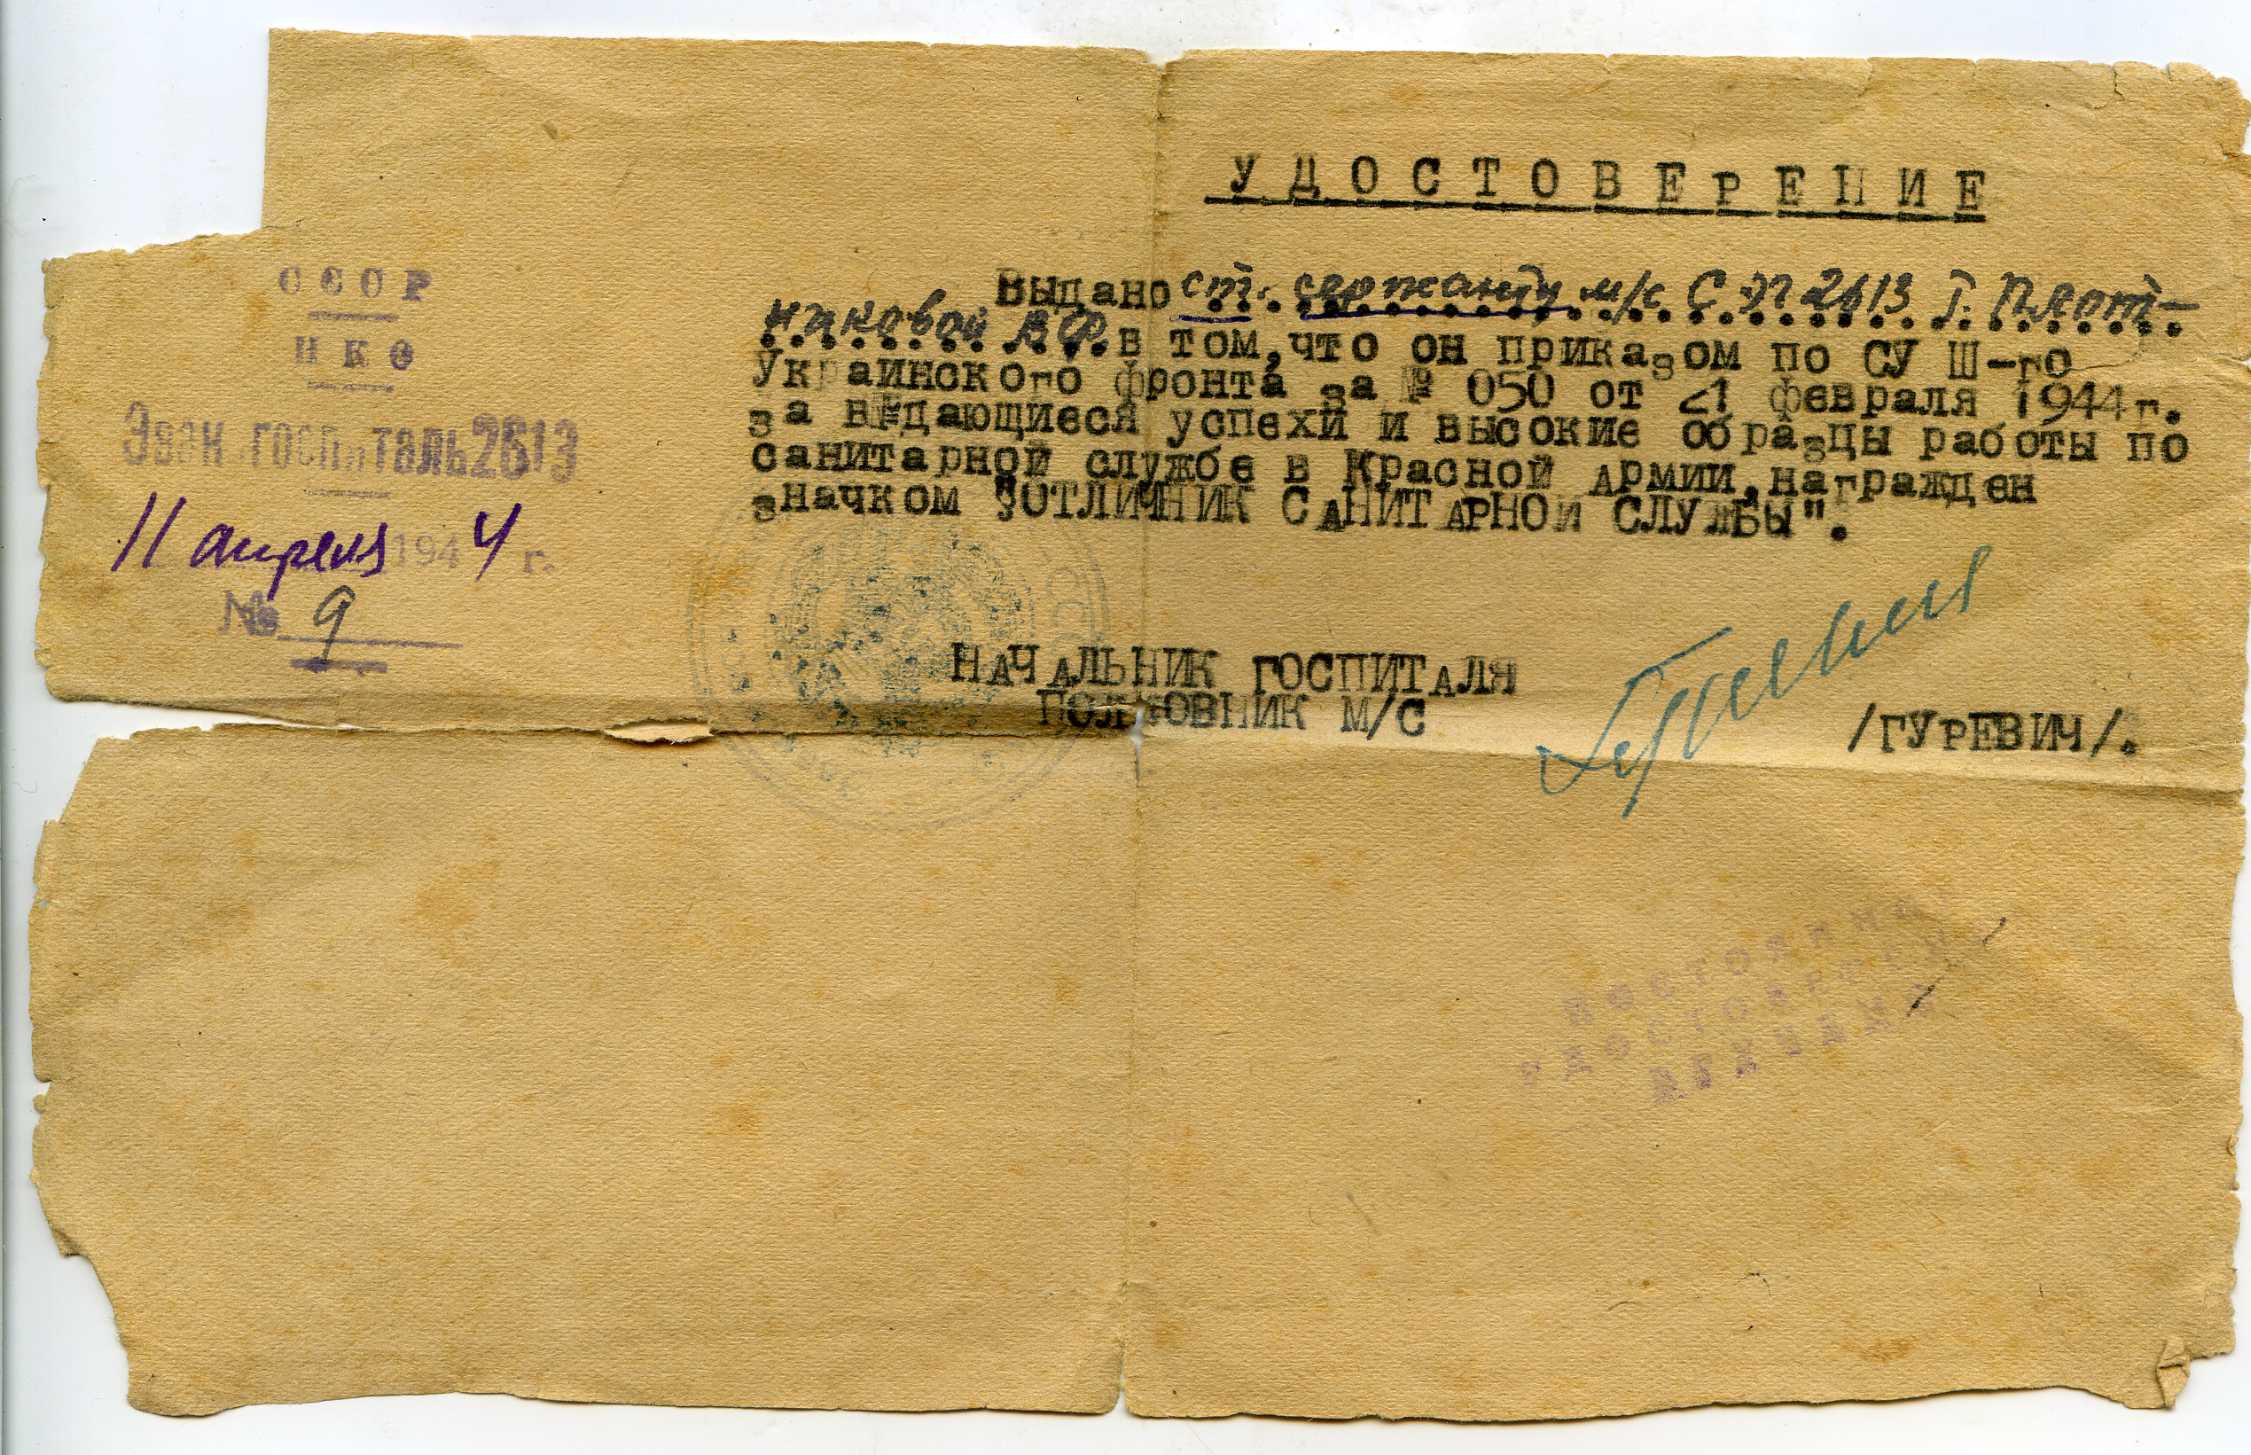 УДОСТОВЕРЕНИЕ
СССР
НКО
Эвак.госпиталь 2613
11 апреля 1944 г.
№ 9
Выдано ст. сержанту м/с С ЭГ 2613 т. Плот-
никовой В.Ф. в том,что он приказом по СУ Ш-го
Украинского фронта за № 050 от 21 февраля 1944г.
за выдающиеся успехи и высокие образцы работы по
санитарной службе в Красной Армии,награжден
значком "ОТЛИЧНИК САНИТАРНОЙ СЛУЖБЫ".
НАЧАЛЬНИК ГОСПИТАЛЯ
ПОЛКОВНИК М/С
/ГУРЕВИЧ/.